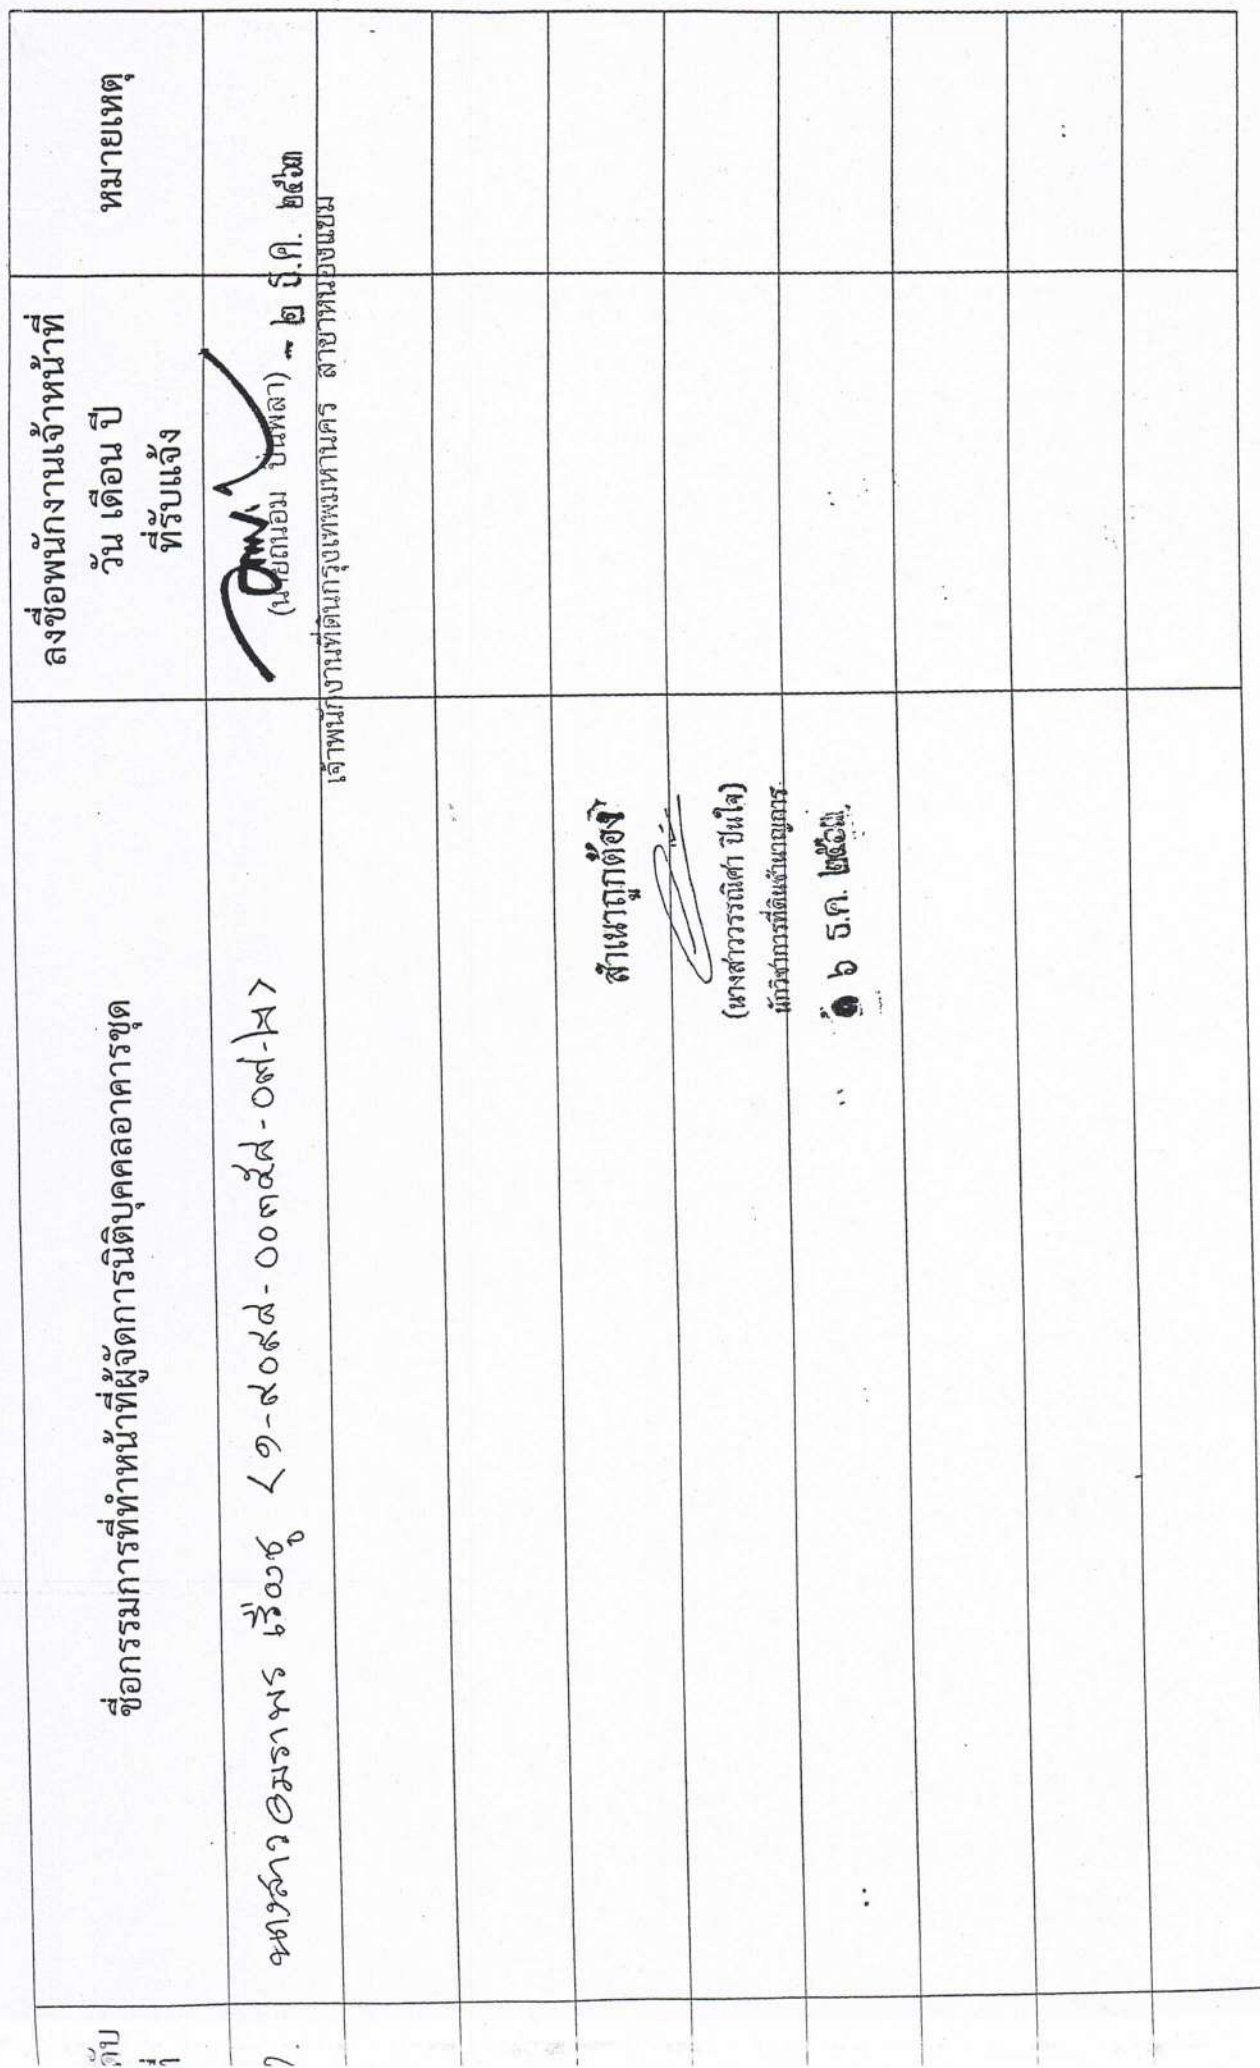 ดับ
ที่
ชื่อกรรมการที่ทำหน้าที่ผู้จัดการนิติบุคคลอาคารชุด
ลงชื่อพนักงานเจ้าหน้าที่
วัน เดือน ปี
ที่รับแจ้ง
หมายเหตุ
๑.
นางสาวอมราพร เรืองชู
(นายถนอม ปุนพลา) - ๒ ธ.ค. ๒๕๖๓
เจ้าพนักงานที่ดินกรุงเทพมหานคร สาขาหนองแขม
สำเนาถูกต้อง
(นางสาววรรณิศา ปินใจ)
นักวิชาการที่ดินชำนาญการ
๖ ธ.ค. ๒๕๖๓